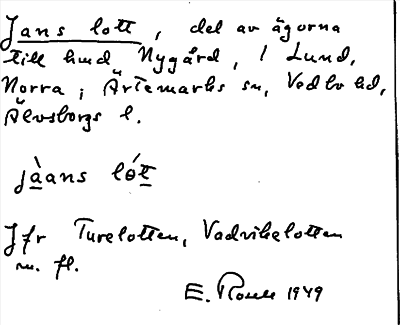 Jans lott, del av ägorna
till hmd Nygård, 1 Lund,
Norra, i Ärtemarks sn, Vedbo hd,
Älvsborgs l.
jà̲ans lót̲
Jfr Turelotten, Vadvikelotten
m. fl.
E. 1949